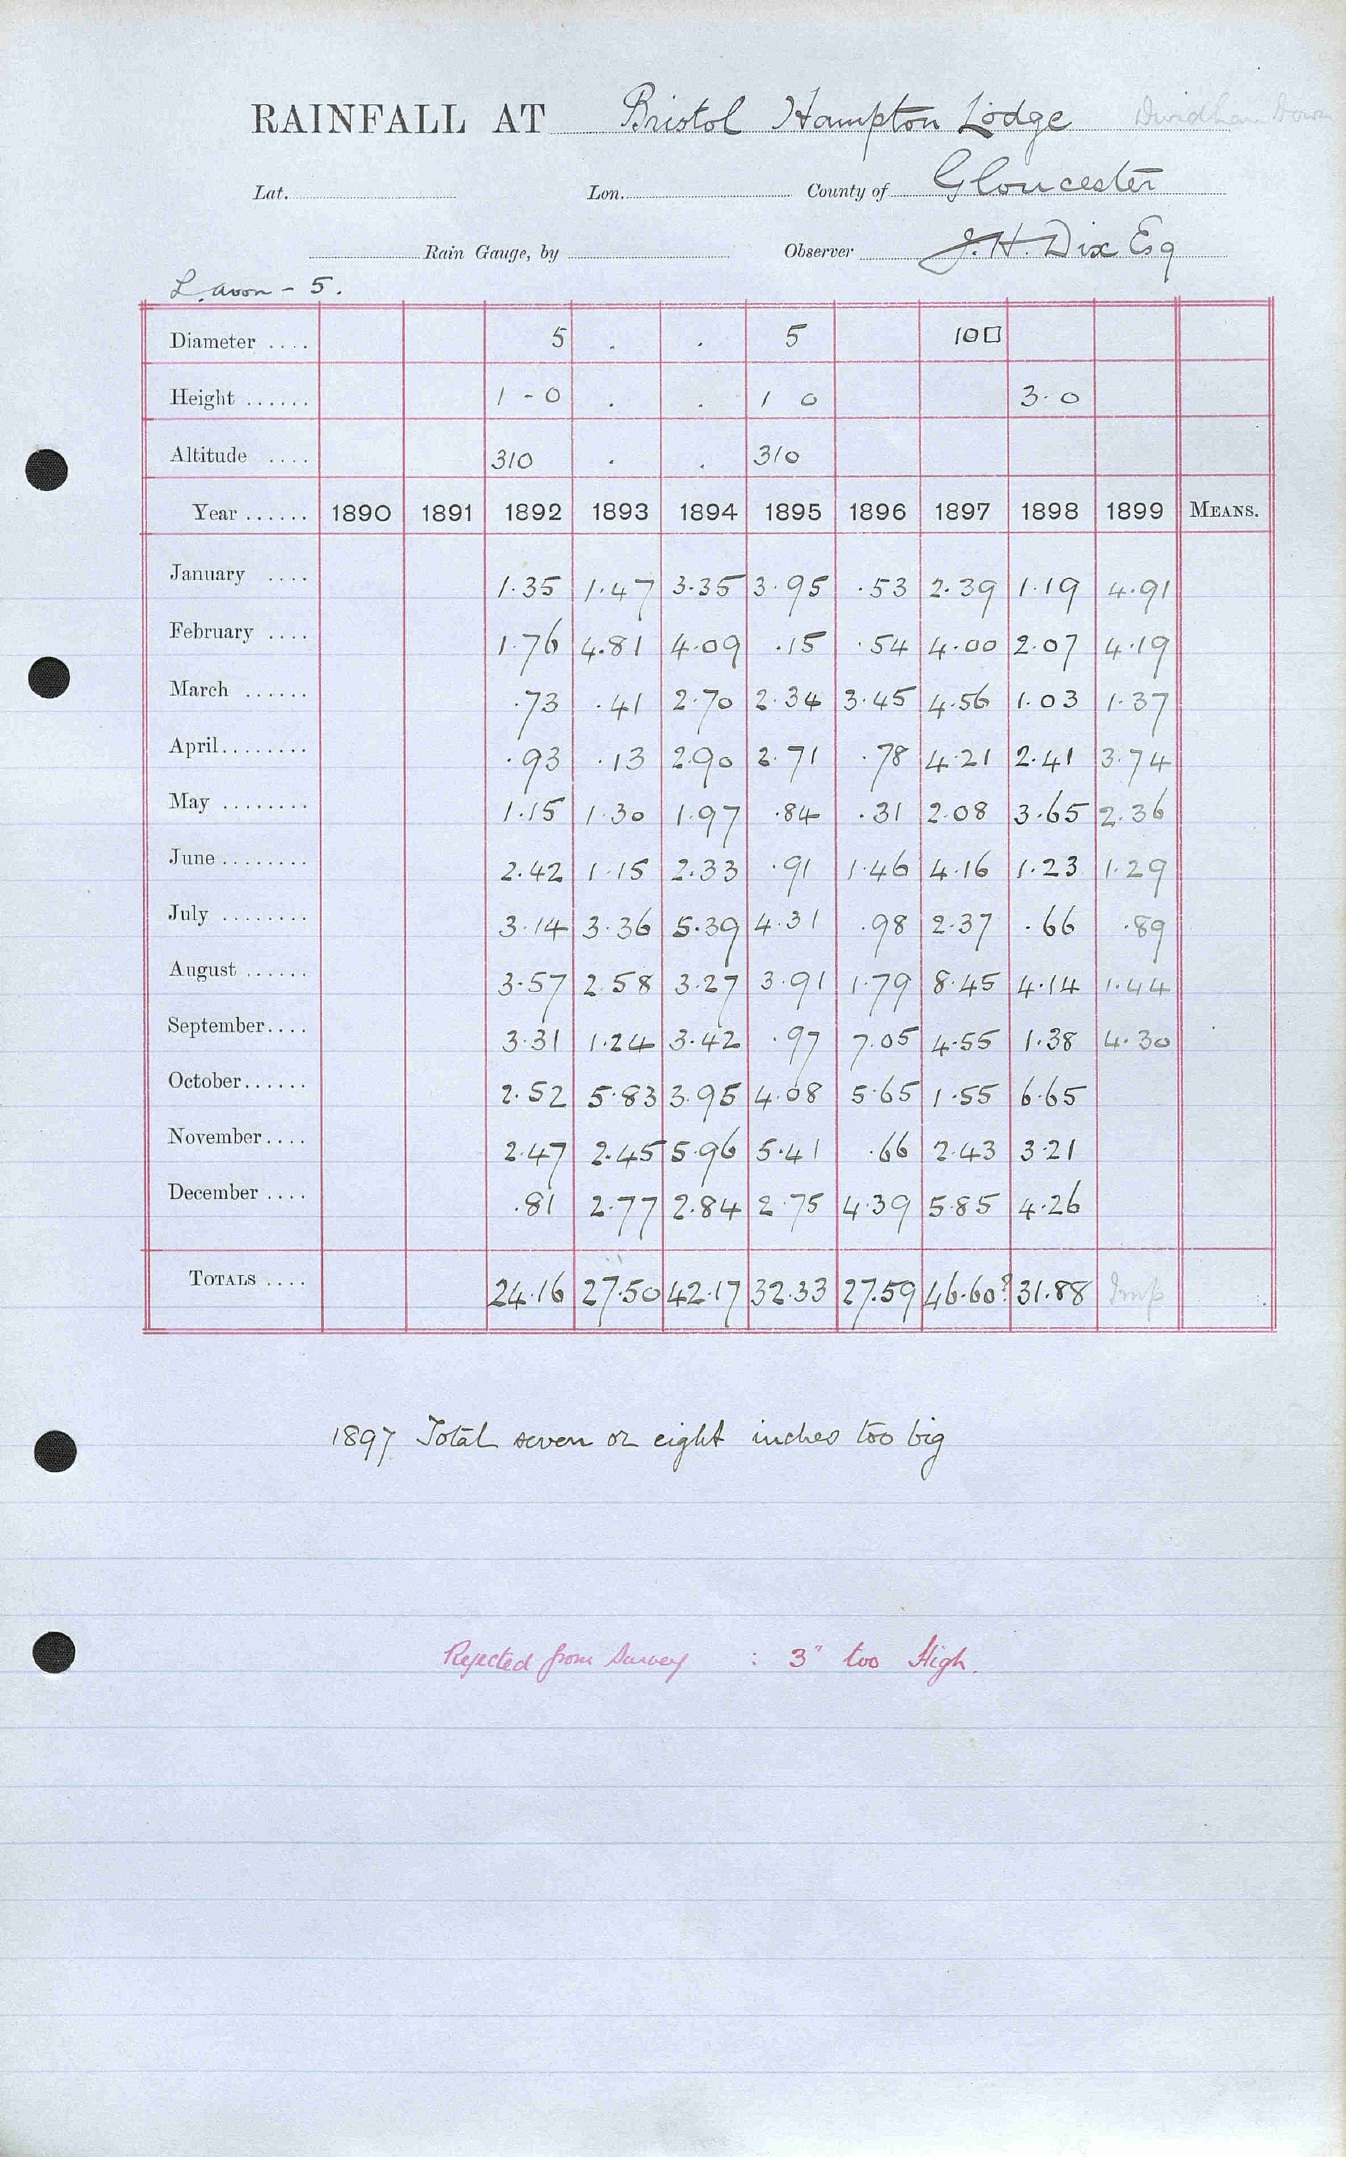 RAINFALL AT Bristol Hampton Lodge
Lat. Lon. County of Gloucester
Rain Gauge, by Observer J. H. Dix Esq
L. avon - 5.
Diameter .... 5 . . 5 10□
Height ...... 1 - 0 . . 1 0 3. 0
Altitude .... 310 . . 310
Year ...... 1890 1891 1892 1893 1894 1895 1896 1897 1898 1899 MEANS.
January .... 1.35 1.47 3.35 3.95 .53 2.39 1.19 4.91
February .... 1.76 4.81 4.09 .15 .54 4.00 2.07 4.19
March ...... .73 .41 2.70 2.34 3.45 4.56 1.03 1.37
April........ .93 .13 2.90 2.71 .78 4.21 2.41 3.74
May ........ 1.15 1.30 1.97 .84 .31 2.08 3.65 2.36
June........ 2.42 1.15 2.33 .91 1.46 4.16 1.23 1.29
July ........ 3.14 3.36 5.39 4.31 .98 2.37 .66 .89
August ...... 3.57 2.58 3.27 3.91 1.79 8.45 4.14 1.44
September.... 3.31 1.24 3.42 .97 7.05 4.55 1.38 4.30
October...... 2.52 5.83 3.95 4.08 5.65 1.55 6.65
November.... 2.47 2.45 5.96 5.41 .66 2.43 3.21
December .... .81 2.77 2.84 2.75 4.39 5.85 4.26
TOTALS .... 24.16 27.50 42.17 32.33 27.59 46.60? 31.88 Imp
1897 Total seven or eight inches too big
Rejected from Survey : 3" too High.